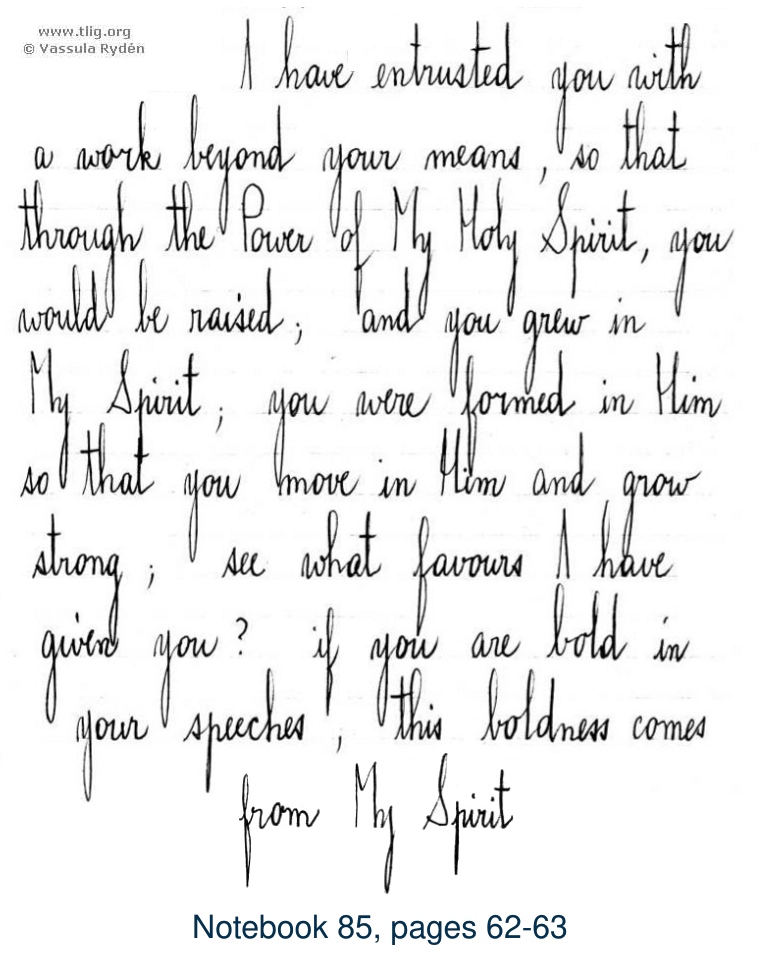 www.tlig.org
© Vassula Rydén
I have entrusted you with
a work beyond your means, so that
through the Power of My Holy Spirit, you
would be raised; and you grew in
My Spirit; you were formed in Him
so that you move in Him and grow
strong; see what favours I have
given you? if you are bold in
your speeches, this boldness comes
from My Spirit
Notebook 85, pages 62-63